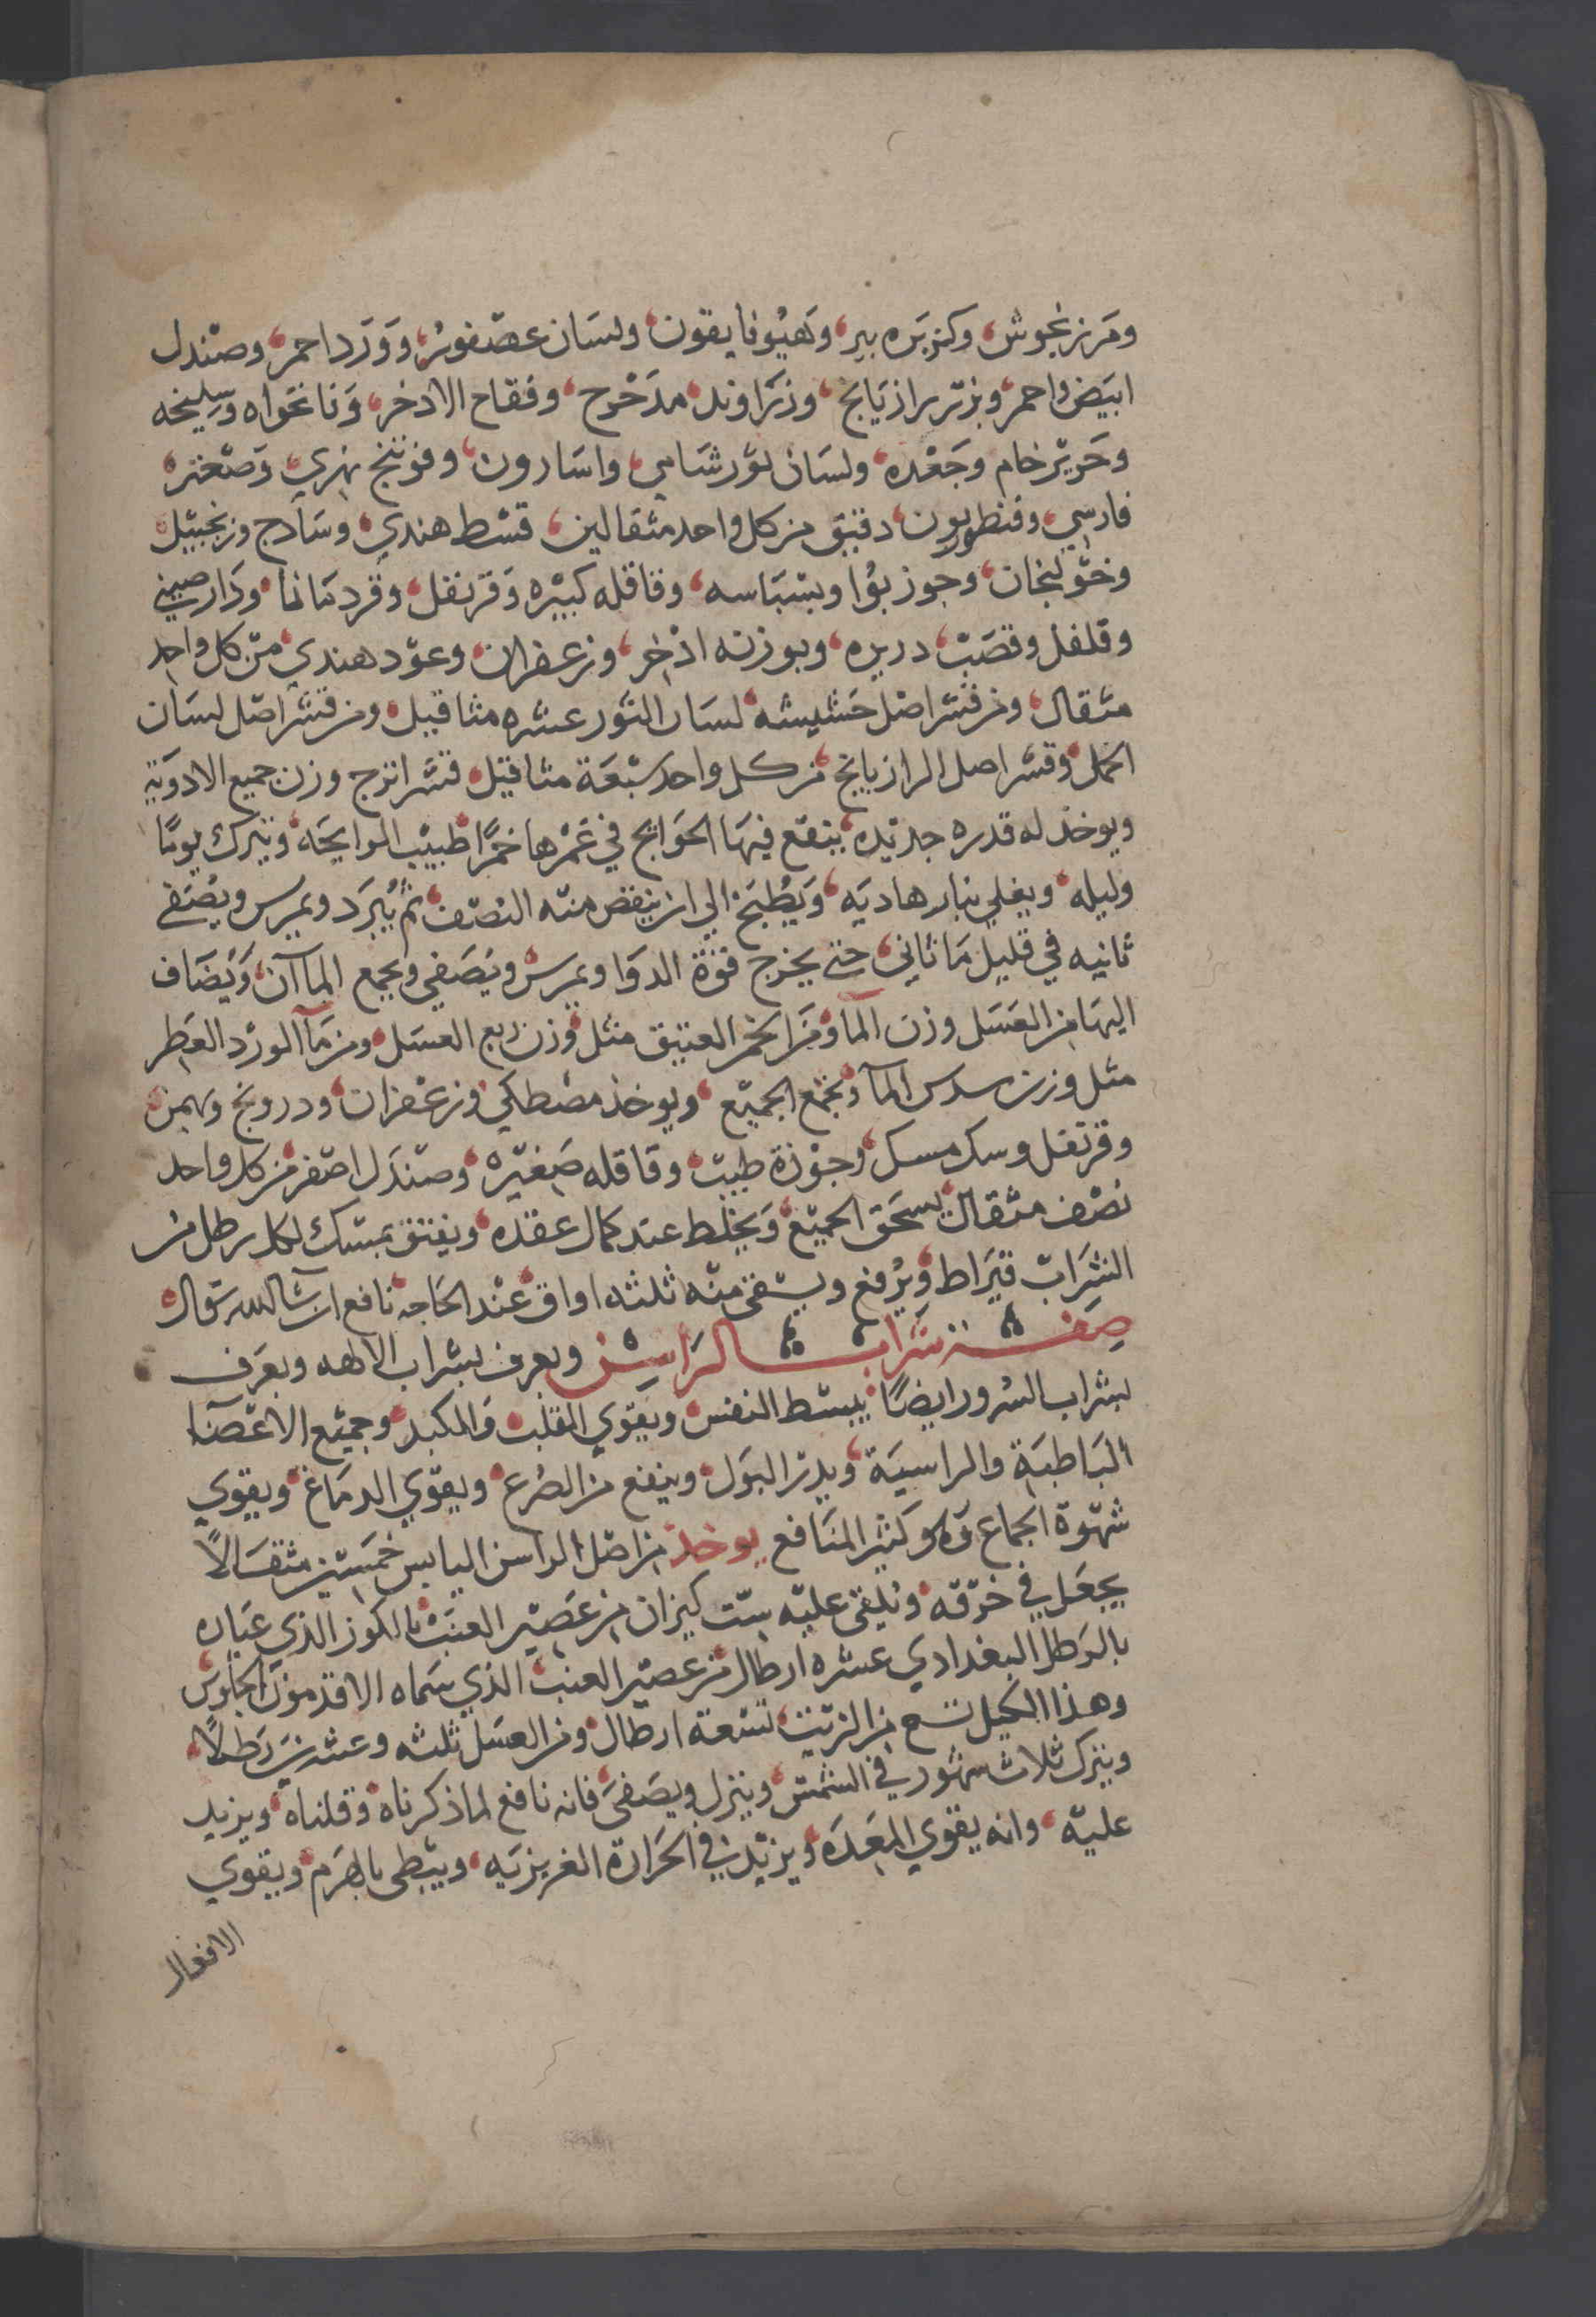 ومرزنجوش، وكزبره بير، وهيوفايقون، ولسان عصفور، وورد احمر، وصندل
ابيض واحمر، وبزر رازيانج، وزراوند مدحرج، وفقاح الادخر، ونانخواه وسليخه
وحرير خام وجعده، ولسان ثور شامي، واسارون، وفوتنج نهري، وصعتر،
فارسي، وقنطوريون، دقيق من كل واحد مثقالين، قسط هندي، وسادج وزنجبيل،
وخولنجان، وجوز بوا وبسباسه، وقاقله كبيره وقرنفل، وقردمانا، ودار صيني
وفلفل وقصب، دريره، وبوزنه اذخر، وزعفران، وعود هندي، من كل واحد
مثقال، ومن قشر اصل حشيشه، لسان الثور عشره مثاقيل، ومن قشر اصل لسان
الحمل، وقشر اصل الرازيانج، من كل واحد سبعة مثاقيل، قشر اترج وزن جميع الادوية
ويوخذ له قدره جديده، ينقع فيها الحوايج في غمرها خمرًا طيب الرايحه، ويترك يومًا
وليله، ويغلي بنار هاديه، ويطبخ الي ان ينقص منه النصف، ثم يبرد ويمرس ويصفي
ثانيه في قليل ما ثاني، حتى يخرج قوة الدوا ويمرس ويصفي ويجمع الماآن، ويضاف
اليها من العسل وزن المآ، ومن الخمر العتيق مثل، وزن ربع العسل، ومن مآ الورد العطر
مثل وزن سدس المآ، ويجمع الجميع، ويوخذ مصطكي، وزعفران، ودرونج وبهمن،
وقرنفل وسك مسك، وجوزة طيب، وقاقله صغيره، وصندل اصفر، من كل واحد
نصف مثقال، يسحق الجميع، ويخلط عند كمال عقده، ويفتق بمسك لكل رطل من
الشراب قيراط، ويرفع ويسقى منه ثلثه اواق، عند الحاجه، نافع ان شا الله تعالى،
صفة شراب الراسن ويعرف بشراب الالهه ويعرف
بشراب السرور ايضًا، يبسط النفس، ويقوي القلب، والكبد، وجميع الاعضآ
الباطنة والراسية، ويدر البول، وينفع من الصرع، ويقوي الدماغ، ويقوي
شهوة الجماع وهو كثير المنافع يوخذ من اصل الراسن اليابس خمسين مثقالًا
يجعل في خرقه، ويلقى عليه ست كيزان من عصير العنب، بالكوز الذي عباره
بالرطل البغدادي عشره ارطال، من عصير العنب، الذي سماه الاقدمون الجاوس،
وهذا الكيل تسع من الزيت، تسعة ارطال، ومن العسل ثلثه وعشرين رطلًا،
ويترك ثلاث شهور في الشمس، وينزل ويصفى، فانه نافع لما ذكرناه، وقلناه، ويزيد
عليه، وانه يقوي المعده، ويزيد في الحرارة الغريزيه، ويبطى بالهرم، ويقوي
الافعال